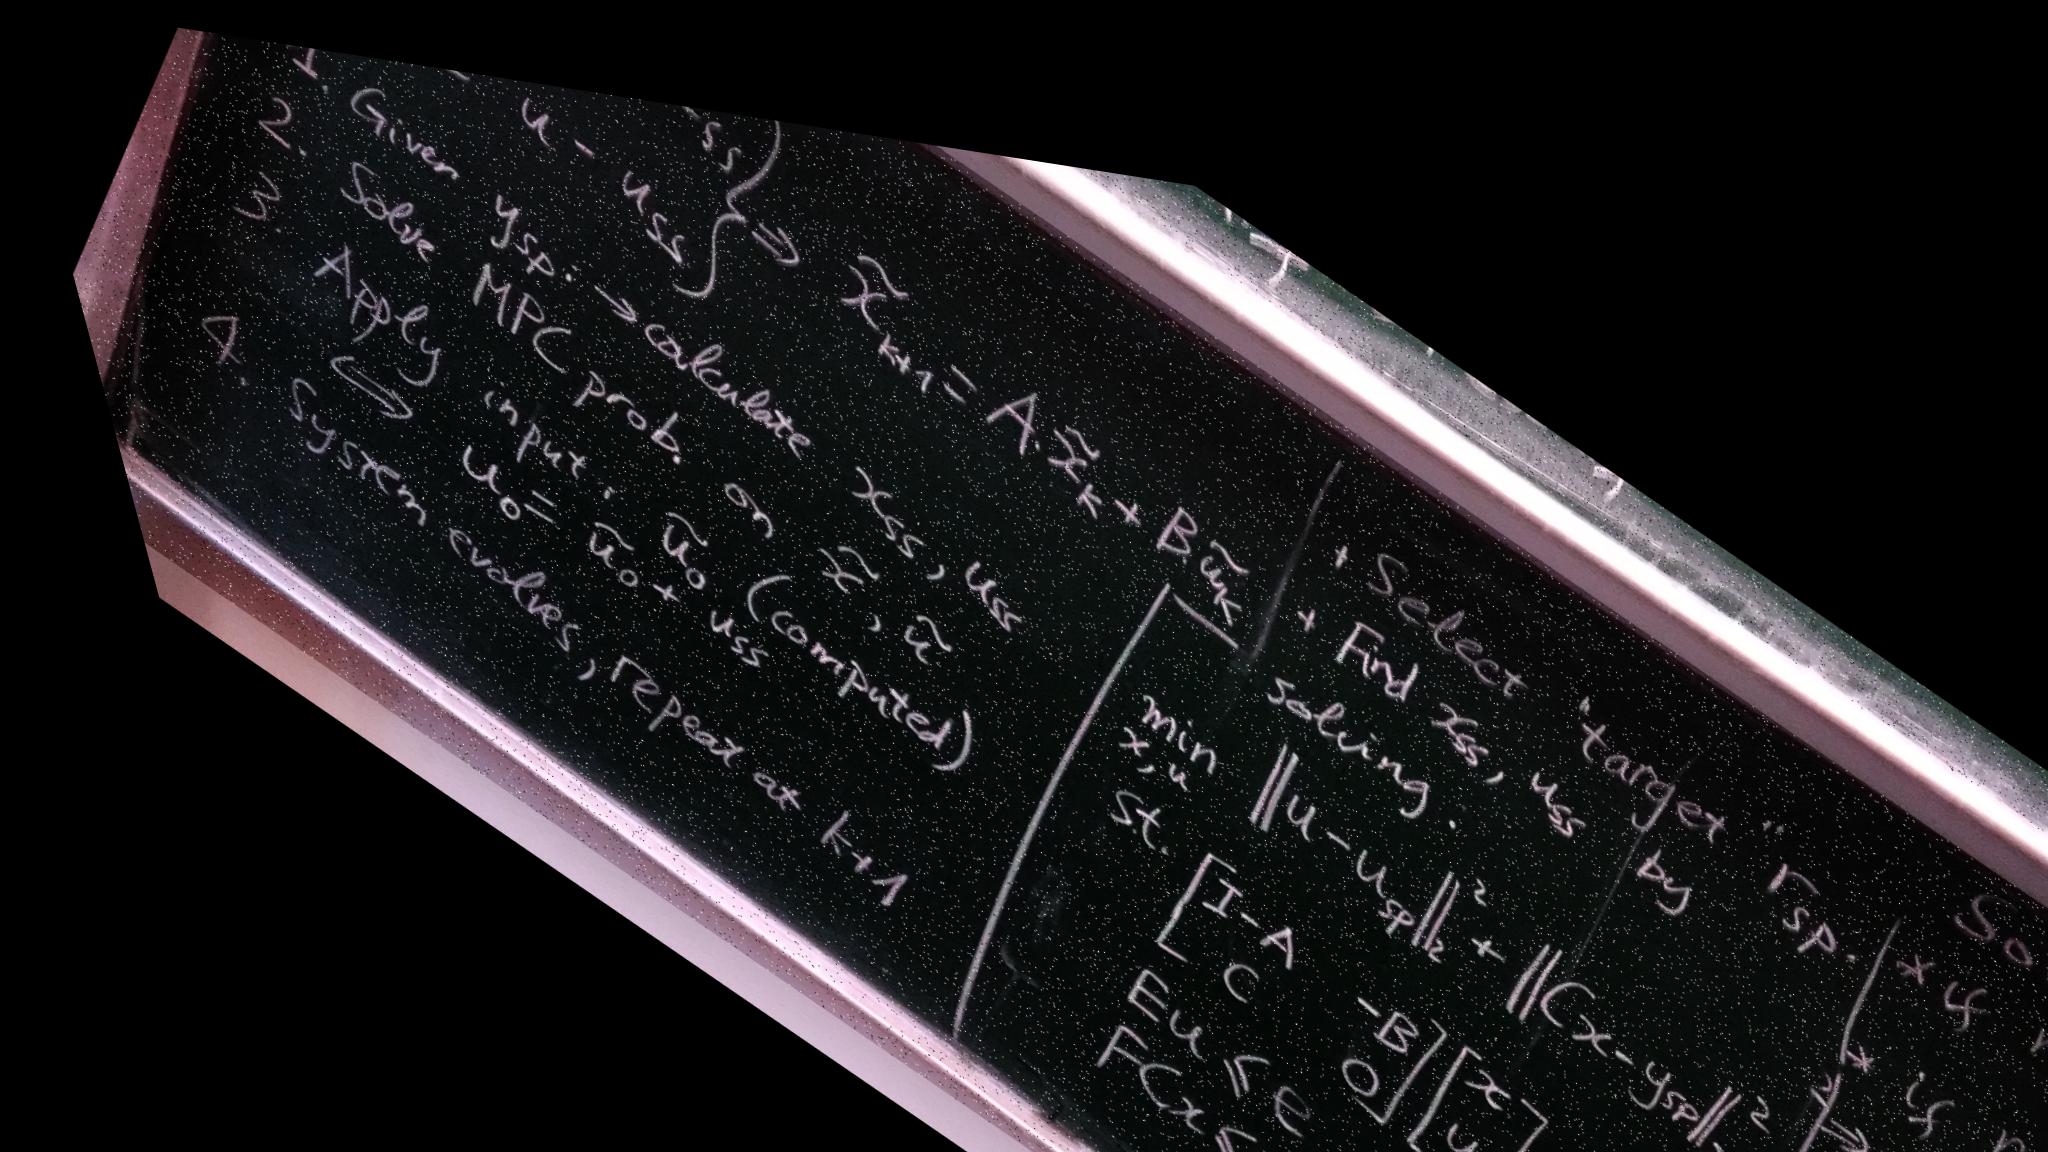 u - uss } ⇒ x̃k+1 = A.x̃k + B.ũk
1. Given ysp. → calculate xss, uss
2. Solve MPC prob. on x̃, ũ
3. Apply input: ũ0 (computed)
⟺ u0 = ũ0 + uss
4. System evolves, repeat at k+1
+ Select "target" rsp.
+ Find xss, uss by
solving:
min ||u-usp||²₂ + ||Cx-ysp||²
x,u
St. [I-A -B] [x
C 0] u]
Eu ≤ e
FCx ≤